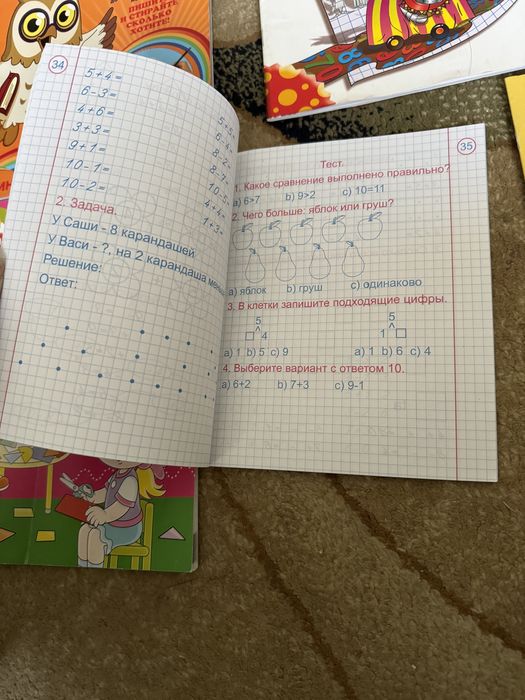 ПИШИ
И СТИРАЙТЕ
СКОЛЬКО
ХОТИТЕ!
34
5+4=
6-3=
4+6=
3+3=
9+1=
10-1=
10-2=
2. Задача.
У Саши - 8 карандашей
У Васи - ?, на 2 карандаша
Решение:
Ответ:
35
Тест.
1. Какое сравнение выполнено правильно?
a) 6>7 b) 9>2 c) 10=11
2. Чего больше: яблок или груш?
a) яблок b) груш c) одинаково
3. В клетки запишите подходящие цифры.
5 5
4 1
a) 1 b) 5 c) 9 a) 1 b) 6 c) 4
4. Выберите вариант с ответом 10.
a) 6+2 b) 7+3 c) 9-1